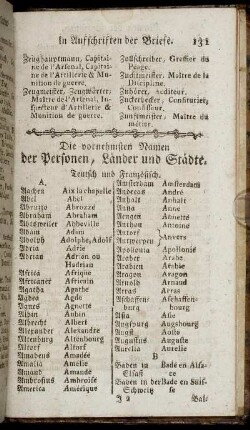 In Aufschriften der Briefe. 131
Zeughauptmann, Capitai-
ne de l'Arsenal, Capitai-
ne de l'Artillerie & Mu-
nition de guerre.
Zeugmeister, Zeugwärter,
Maitre de l'Arsenal, In-
specteur d'Artillerie &
Munition de guerre.
Zollschreiber, Greffier du
Peage.
Zuchtmeister, Maître de la
Discipline.
Zuhörer, Auditeur.
Zuckerbecker, Confiturier,
Confiseur.
Zunftmeister, Maître du
métier.
Die vornehmsten Namen
der Personen, Länder und Städte.
Teutsch und Französisch.
A.
Aachen Aix la chapelle
Abel Abel
Abruzzo Abruzze
Abraham Abraham
Abbeville
Adam Adam
Adolph Adolphe, Adolf
Adria Adrie
Adrian Adrien ou
Hadrian
Africa Afrique
Africaner Africain
Agatha Agathe
Agnes Agnette
Alban Albain
Albrecht Albert
Alexander Alexandre
Altenburg Altenbourg
Altorf Altorf
Amadeus Amadée
Amelia Amelie
Amand Amande
Ambrosius Ambroise
America Amérique
Amsterdam Amsterdam
Andreas André
Anhalt Anhalt
Anna Anne
Annette
Anton Antoine
Antorf
Antwerpen Anvers
Apollonia Apollonie
Araber Arabe
Arabien Arabie
Aragon Aragon
Arnold Arnaud
Arras Arras
Aschaffen-
burg Aschaffen-
bourg
Asia Asie
Augsburg Augsbourg
August Auguste
Augustus Auguste
Aurelia Aurelie
B
Baden in Bade en Alsa-
Elsaß ce
Baden in der Bade en Suis-
Schweiz se
J 2 Bal-